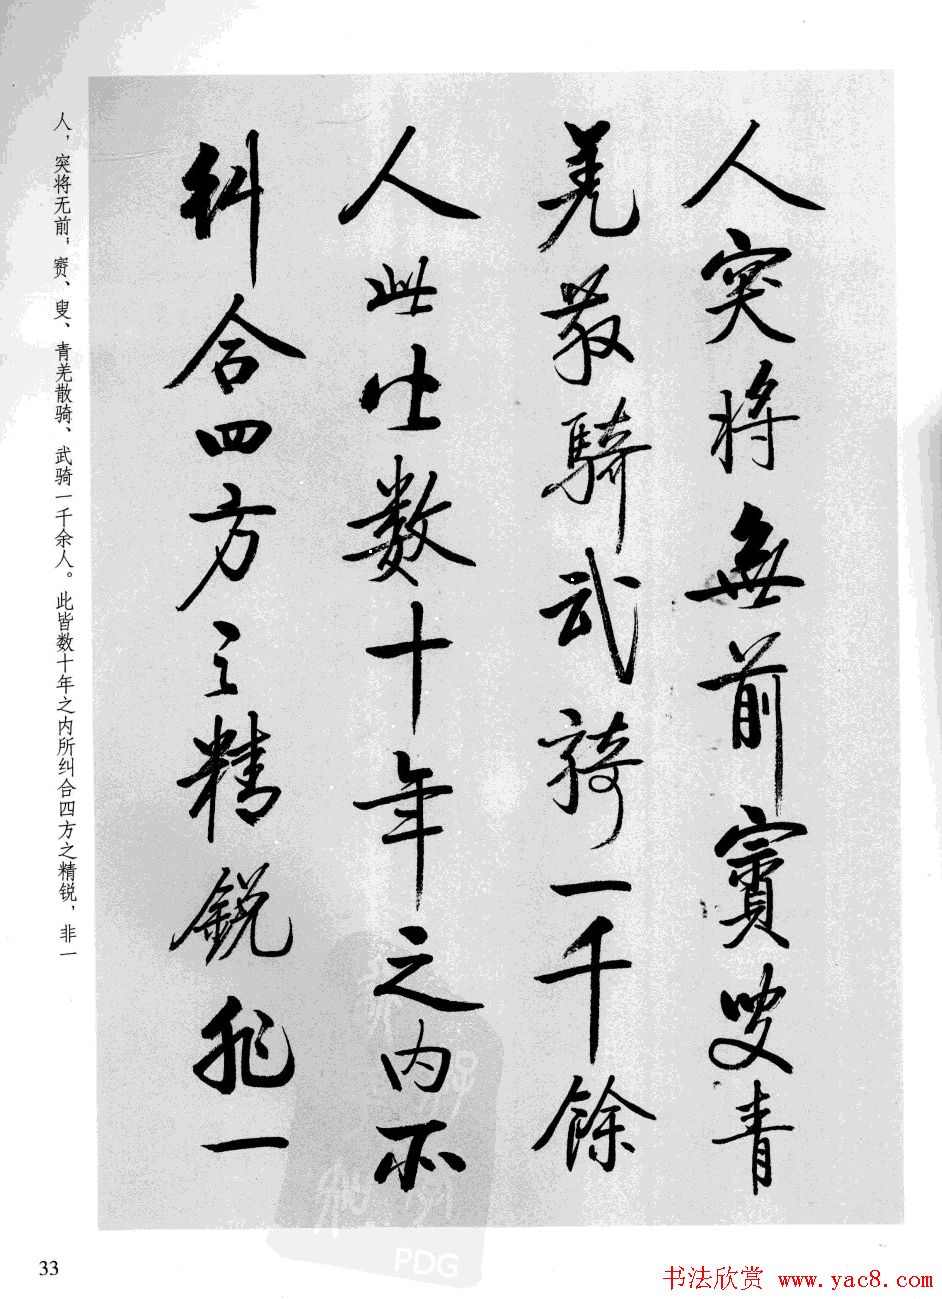 人突将無前賨叟青
羌散騎武騎一千餘
人此皆数十年之内所
糾合四方之精鋭非一
人，突将无前；賨、叟、青羌散骑、武骑一千余人。此皆数十年之内所纠合四方之精锐，非一
33
PDG
书法欣赏 www.yac8.com